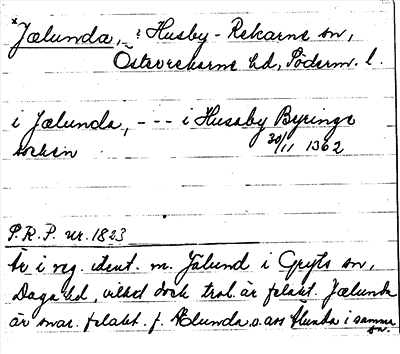 *Jælunda, ~ i Husby-Rekarne sn,
Österrekarne hd, Söderm. l.
i Jælunda, --- i Husaby Byringe
sokn 30/11 1362
P.R.P. nr. 1823
Är i reg. ident. m. Jälund i Gryts sn,
Daga hd, vilket dock trol. är felakt. Jælunda
är snar. felakt. f. Ælunda, o. avs Älunda i samma
sn.